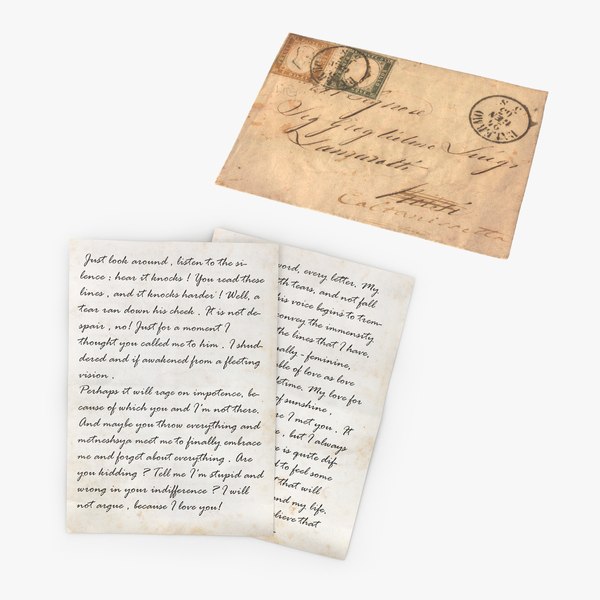 Signore
Sig
Luigi
Caltanissetta
PALERMO
GEN
Just look around , listen to the si-
lence ; hear it knocks ! You read these
lines , and it knocks harder ! Well, a
tear ran down his cheek . It is not de-
spair , no! Just for a moment I
thought you called me to him . I shud-
dered and if awakened from a fleeting
vision .
Perhaps it will rage on impotence, be-
cause of which you and I'm not there.
And maybe you throw everything and
metneshsya meet me to finally embrace
me and forget about everything . Are
you kidding ? Tell me I'm stupid and
wrong in your indifference ? I will
not argue , because I love you!
word, every letter. My
tears, and not fall
his voice begins to trem-
convey the immensity
the lines that I have,
nally - feminine,
ble of love as love
etime. My love for
of sunshine .
re I met you . It
e , but I always
e is quite dif-
d to feel some
that will
nd my life.
lieve that